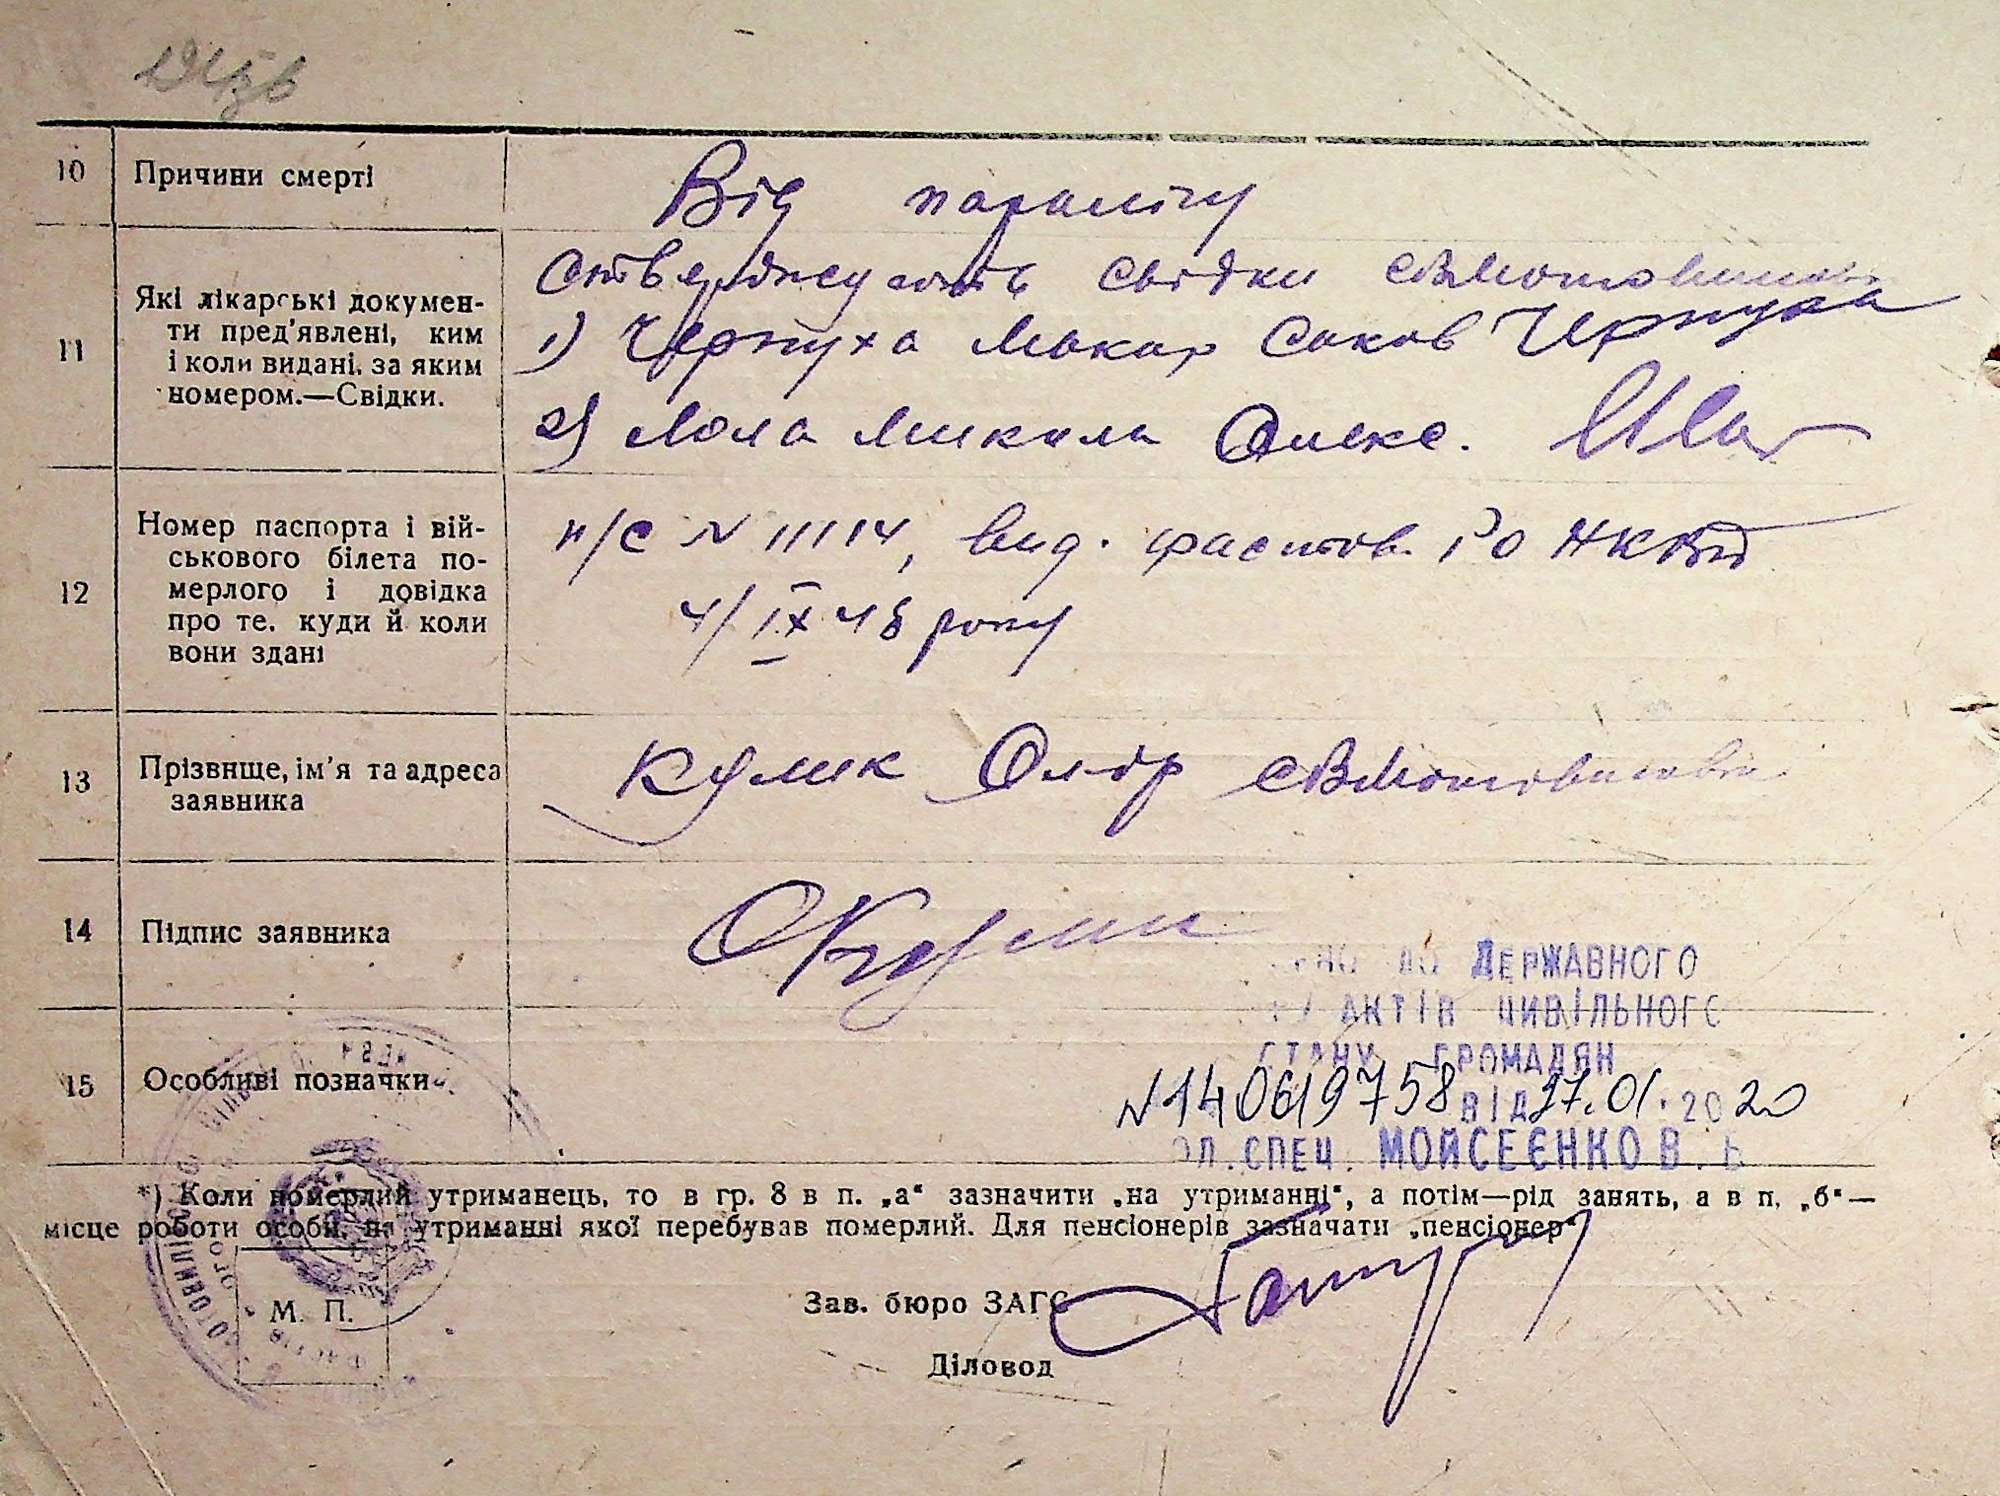 10 Причини смерті
Від паралічу
11 Які лікарські докумен-
ти пред'явлені, ким
і коли видані, за яким
номером.—Свідки.
Стверджують свідки
1) Черпуха Макар Саков Черпуха
2) Лола Микола Олекс.
12 Номер паспорта і вій-
ськового білета по-
мерлого і довідка
про те, куди й коли
вони здані
п/с N 11114, вид. фастов. РО НКВД
4/IX 48 року
13 Прізвище, ім'я та адреса
заявника
Кулик
14 Підпис заявника
15 Особливі позначки
ДЕРЖАВНОГО
АКТІВ ЦИВІЛЬНОГО
СТАНУ ГРОМАДЯН
N 140619758 від 27.01.2020
СПЕЦ. МОЙСЕЄНКО В.
*) Коли померлий утриманець, то в гр. 8 в п. „а“ зазначити „на утриманні“, а потім—рід занять, а в п. „б“—
місце роботи особи, на утриманні якої перебував померлий. Для пенсіонерів зазначати „пенсіонер“
М. П.
Зав. бюро ЗАГС
Діловод